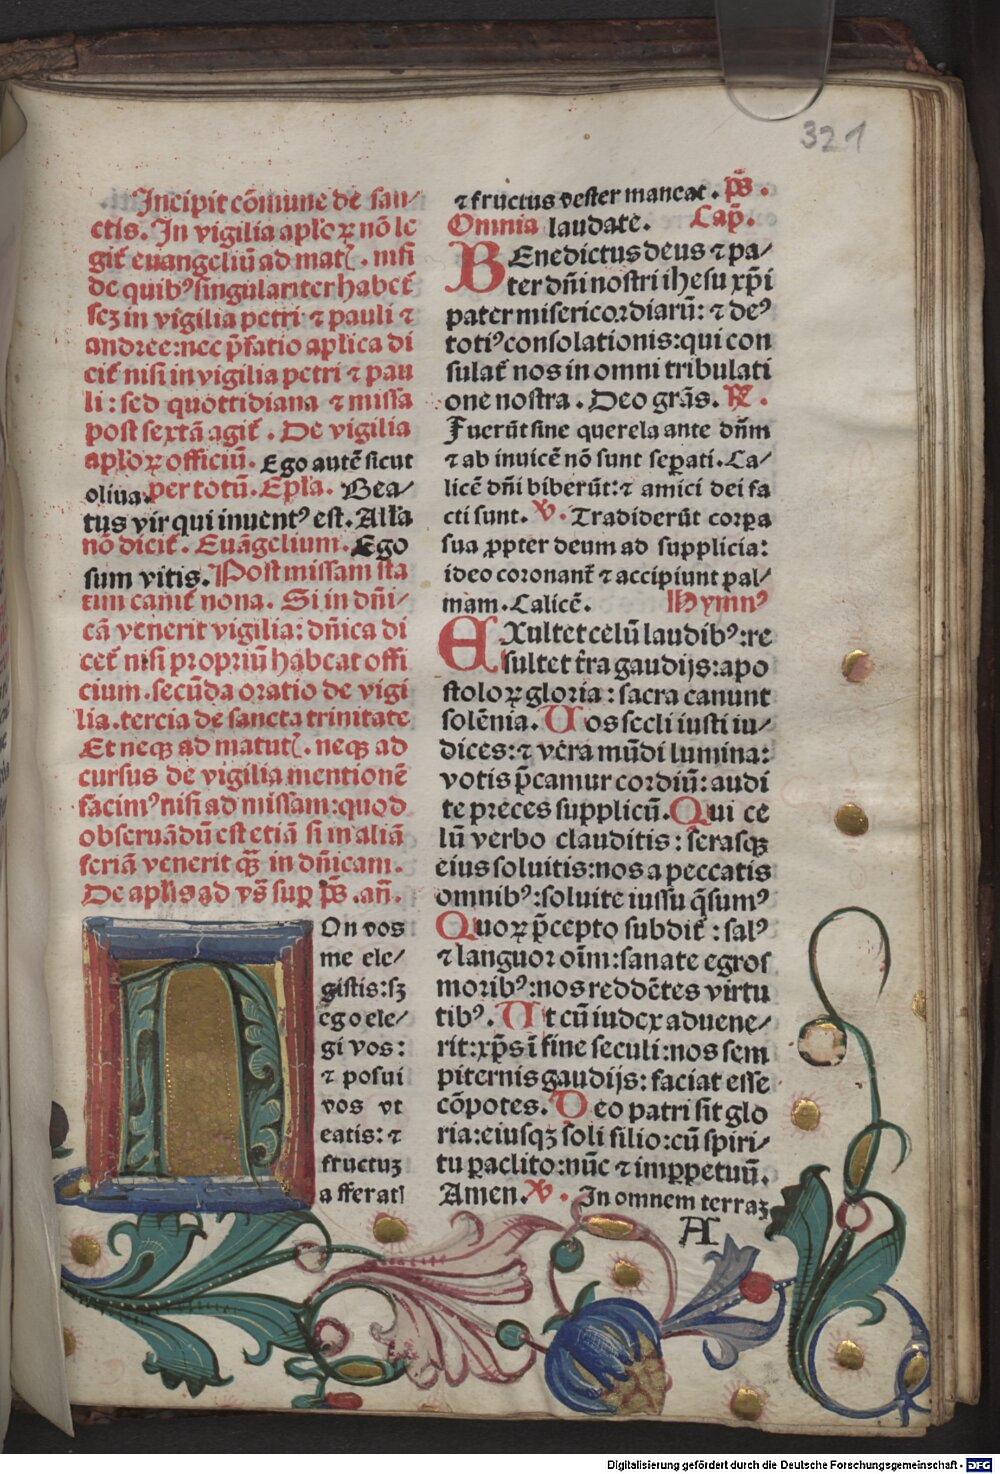 321
Incipit cõmune de san⸗
ctis. In vigilia aplõꝝ nõ le
git᷑ euangeliũ ad mat᷑. nisi
de quibꝰ singulariter habet᷑
scꝫ in vigilia petri ⁊ pauli ⁊
andree: nec p̃fatio aplica di
cit᷑ nisi in vigilia petri ⁊ pau
li: sed quottidiana ⁊ missa
post sextã agit᷑. De vigilia
aplõꝝ officiũ. Ego autẽ sicut
oliua. per totũ. Ep̃la. Bea⸗
tus vir qui inuentꝰ est. Alla
nõ dicit᷑. Euãgelium. Ego
sum vitis. Post missam sta
tim canit᷑ nona. Si in dñi⸗
cã venerit vigilia: dñica di
cet᷑ nisi propriũ habeat offi
cium. secũda oratio de vigi
lia. tercia de sancta trinitate
Et neqꝫ ad matut᷑. neqꝫ ad
cursus de vigilia mentionẽ
facimꝰ nisi ad missam: quod
obseruãdũ est etiã si in aliã
feriã venerit q̃ꝫ in dñicam.
De aplis ad vs̃ suꝑ p̃s. añ.
Non vos
me ele⸗
gistis: sꝫ
ego ele⸗
gi vos:
⁊ posui
vos vt
eatis: ⁊
fructuꝫ
afferatꝭ
⁊ fructus vester maneat. p̃s.
Omnia laudate. Cap̃.
BEnedictus deus ⁊ pa⸗
ter dñi nostri ihesu xp̃i
pater misericordiarũ: ⁊ deꝰ
totiꝰ consolationis: qui con
sulat᷑ nos in omni tribulati
one nostra. Deo grãs. ꝶ.
Fuerũt sine querela ante dñm
⁊ ab inuicẽ nõ sunt seꝑati. Ca⸗
licẽ dñi biberũt: ⁊ amici dei fa
cti sunt. ꝟ. Tradiderũt corꝑa
sua ꝓpter deum ad supplicia:
ideo coronant᷑ ⁊ accipiunt pal⸗
mam. Calicẽ. Hymnꝰ
EXultet celũ laudibꝰ: re
sultet t̃ra gaudijs: apo
stoloꝝ gloria: sacra canunt
solẽnia. Uos secli iusti iu⸗
dices: ⁊ vera mũdi lumina:
votis p̃camur cordiũ: audi
te preces supplicũ. Qui ce
lũ verbo clauditis: serasqꝫ
eius soluitis: nos a peccatis
omnibꝰ: soluite iussu q̃sumꝰ
Quoꝝ p̃cepto subdit᷑: salꝰ
⁊ languor oĩm: sanate egros
moribꝰ: nos reddẽtes virtu
tibꝰ. Ut cũ iudex aduene⸗
rit: xp̃s ĩ fine seculi: nos sem
piternis gaudijs: faciat esse
cõpotes. Deo patri sit glo
ria: eiusqꝫ soli filio: cũ spiri⸗
tu ꝑaclito: nũc ⁊ imꝑpetuũ.
Amen. ꝟ. In omnem terraꝫ
A I
Digitalisierung gefördert durch die Deutsche Forschungsgemeinschaft - DFG